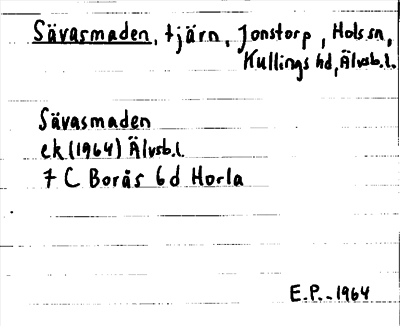 Sävasmaden, tjärn, Jonstorp, Hols sn,
Kullings hd, Älvsb.l.
Sävasmaden
ek (1964) Älvsb.l.
7 C Borås 6d Horla
E.P. - 1964